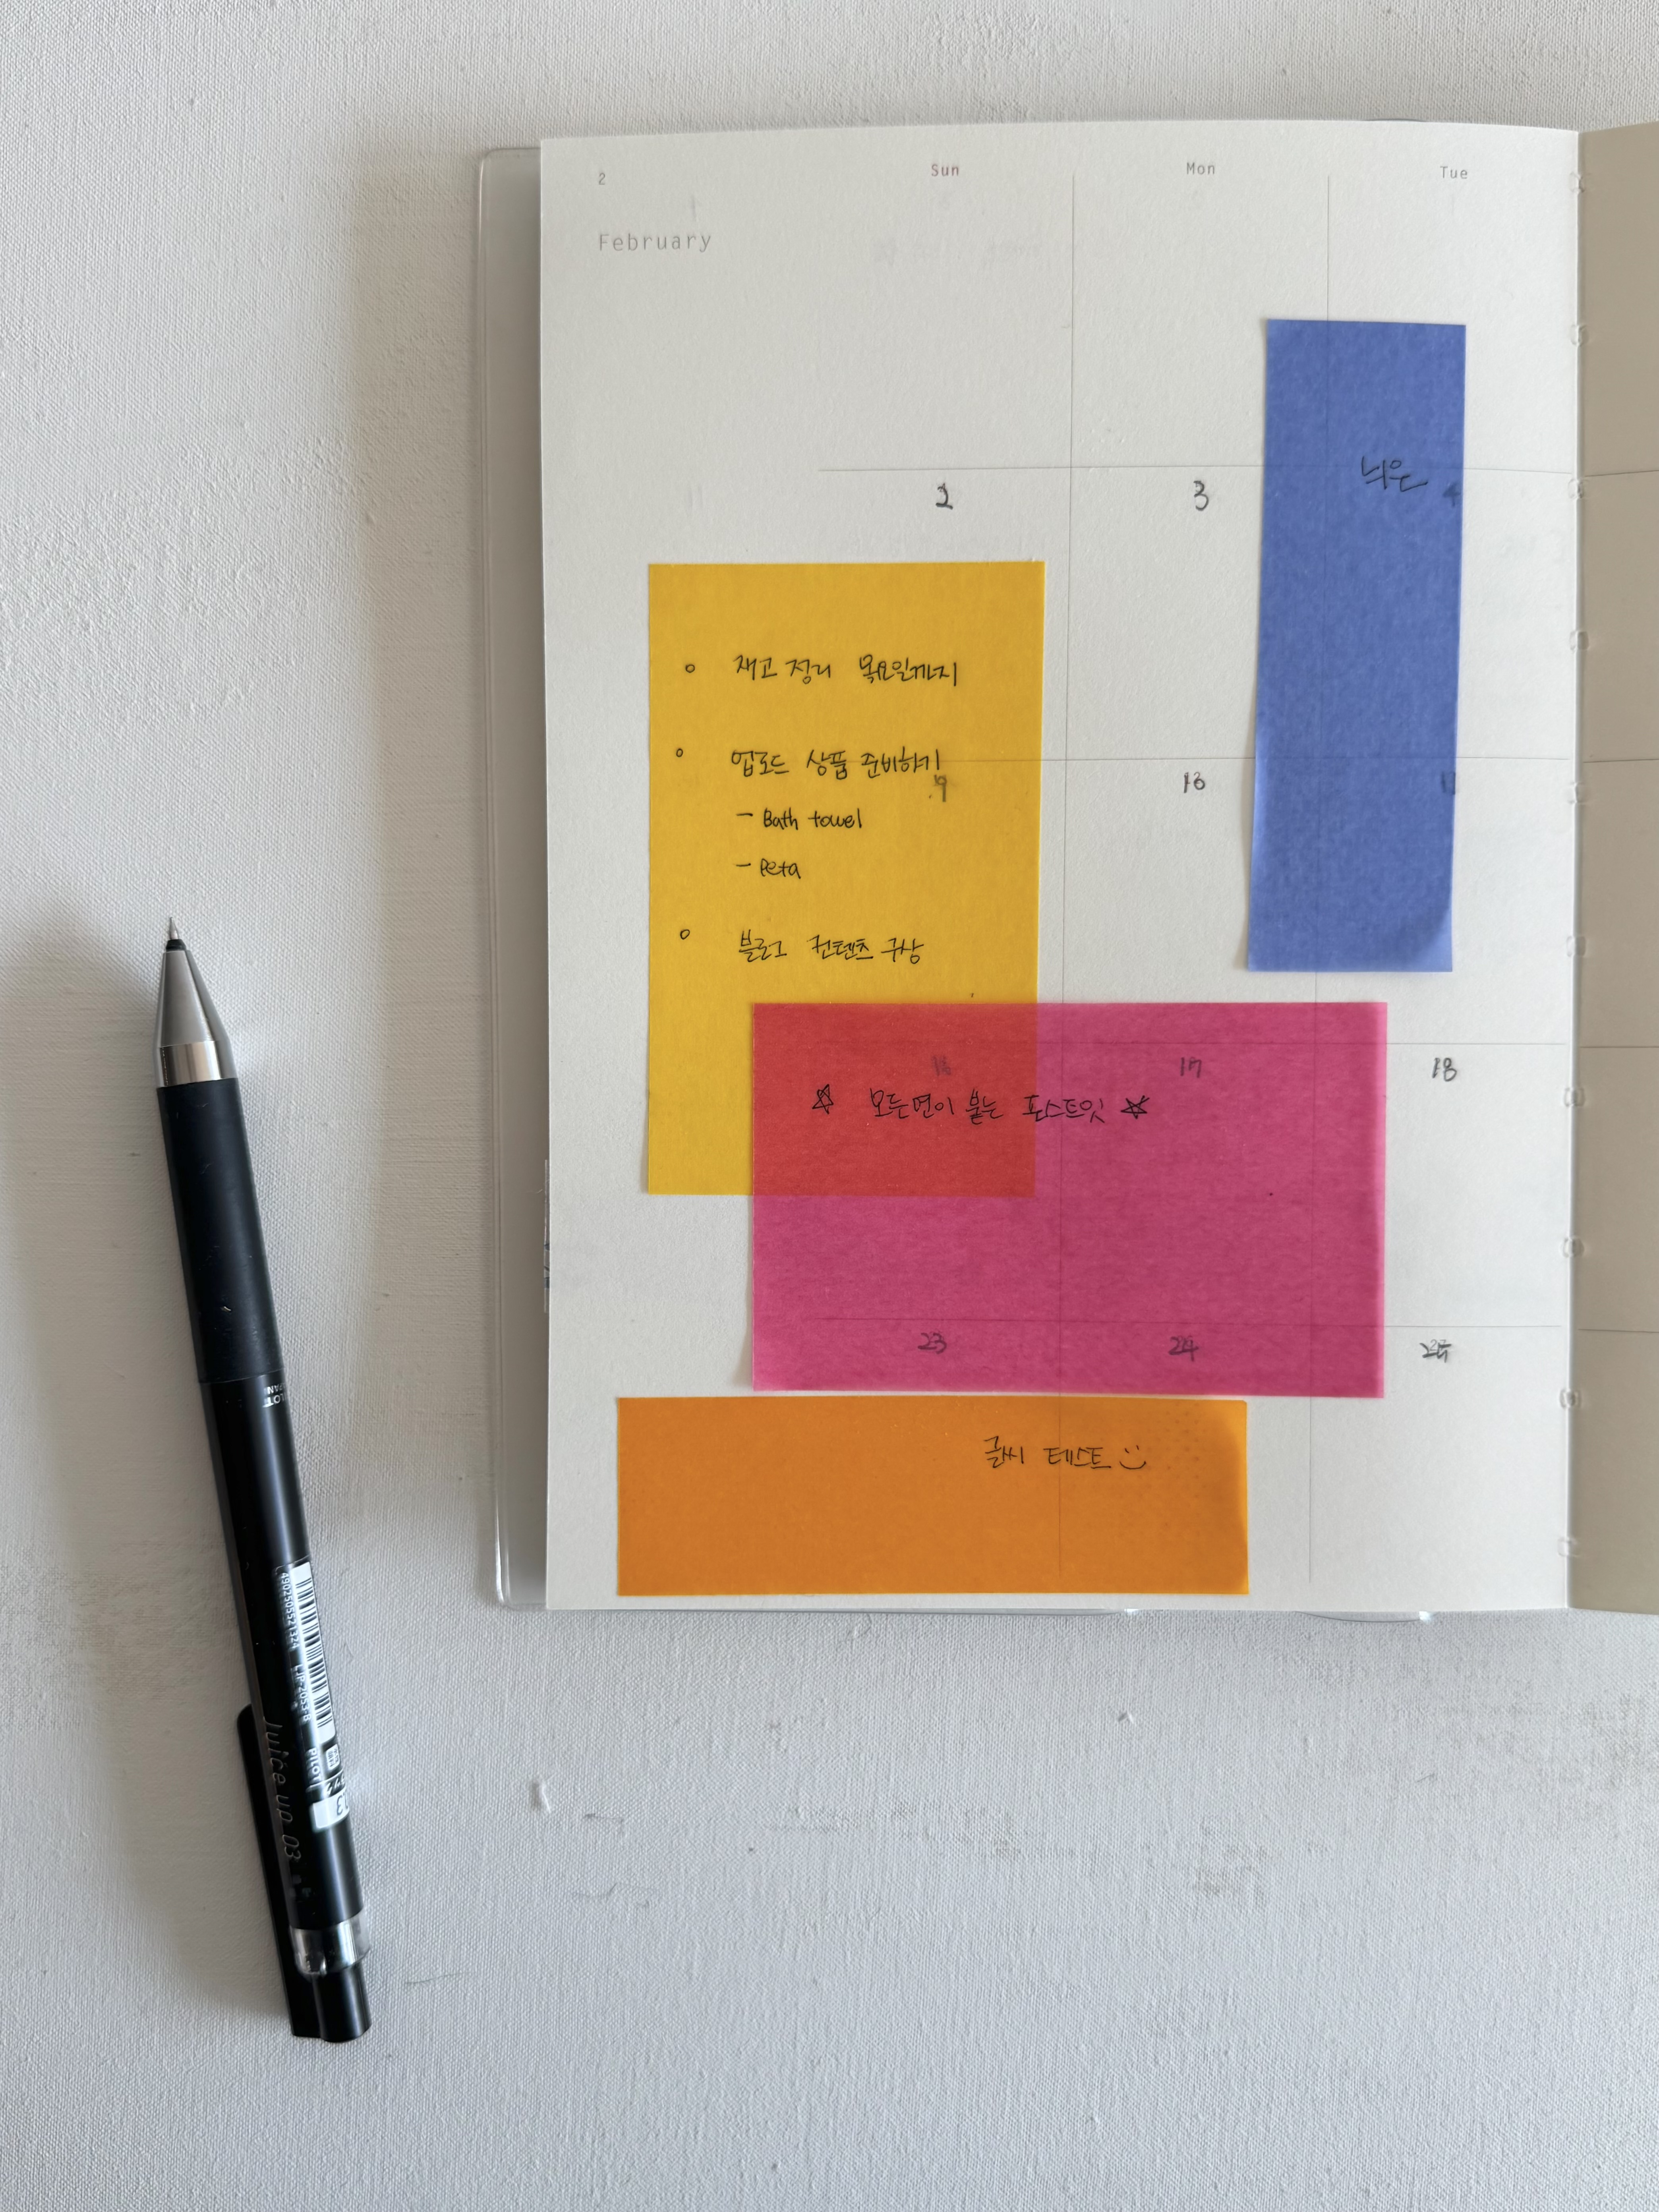 2 Sun Mon Tue
February
늬은
2 3 4
○ 재고 정리 목요일까지
○ 업로드 상품 준비하기
9 10 11
- Bath towel
- Peta
○ 블로그 컨텐츠 구상
16 17 18
☆ 모든면이 붙는 포스트잇 ☆
23 24 25
글씨 테스트 :)
4902505521324 LJP-20S3-B
PILOT
Juice up 03